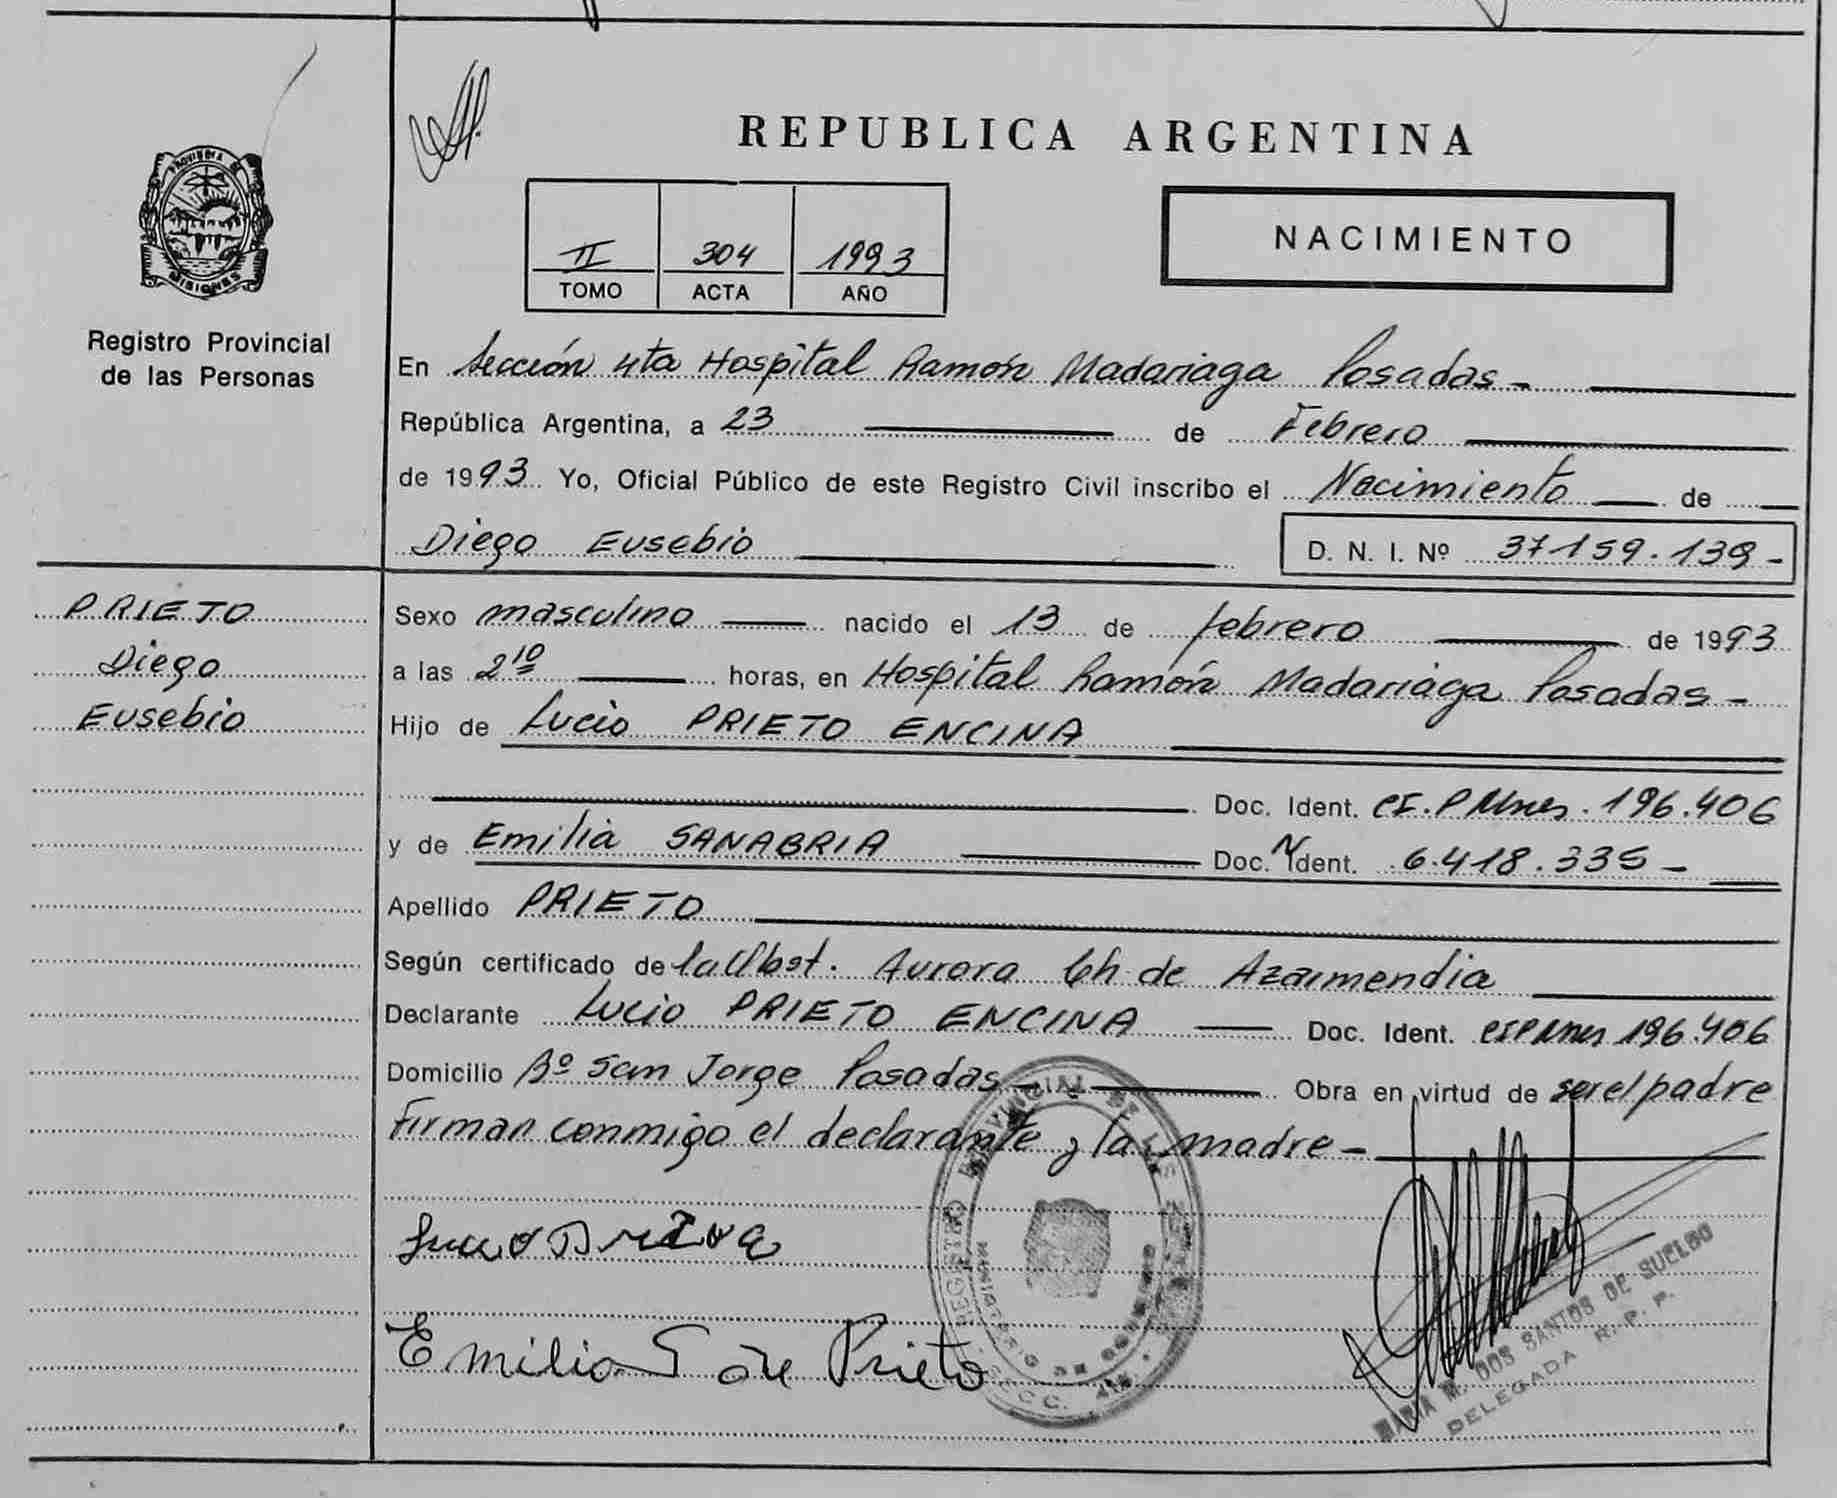 REPUBLICA ARGENTINA
PROVINCIA DE
MISIONES
Registro Provincial
de las Personas
II 304 1993
TOMO ACTA AÑO
NACIMIENTO
En Sección 4ta Hospital Ramón Madariaga Posadas -
República Argentina, a 23 de Febrero
de 1993 Yo, Oficial Público de este Registro Civil inscribo el Nacimiento de
Diego Eusebio D. N. I. Nº 37159.139-
PRIETO
Diego
Eusebio
Sexo masculino nacido el 13 de febrero de 1993
a las 2 10 horas, en Hospital Ramón Madariaga Posadas -
Hijo de Lucio PRIETO ENCINA
Doc. Ident. CI. P Mnes. 196.406
y de Emilia SANABRIA Doc. Ident. 6.418.335 -
Apellido PRIETO
Según certificado de la Obst. Aurora Ch. de Azarmendia
Declarante Lucio PRIETO ENCINA Doc. Ident. CI P Mnes 196.406
Domicilio Bº San Jorge Posadas - Obra en virtud de ser el padre
Firman conmigo el declarante y la madre -
Emilia S de Prieto
REGISTRO PROVINCIAL DE LAS
MINISTERIO DE GOBIERNO
MARIA DOS SANTOS DE SUELDO
DELEGADA R. P. P.